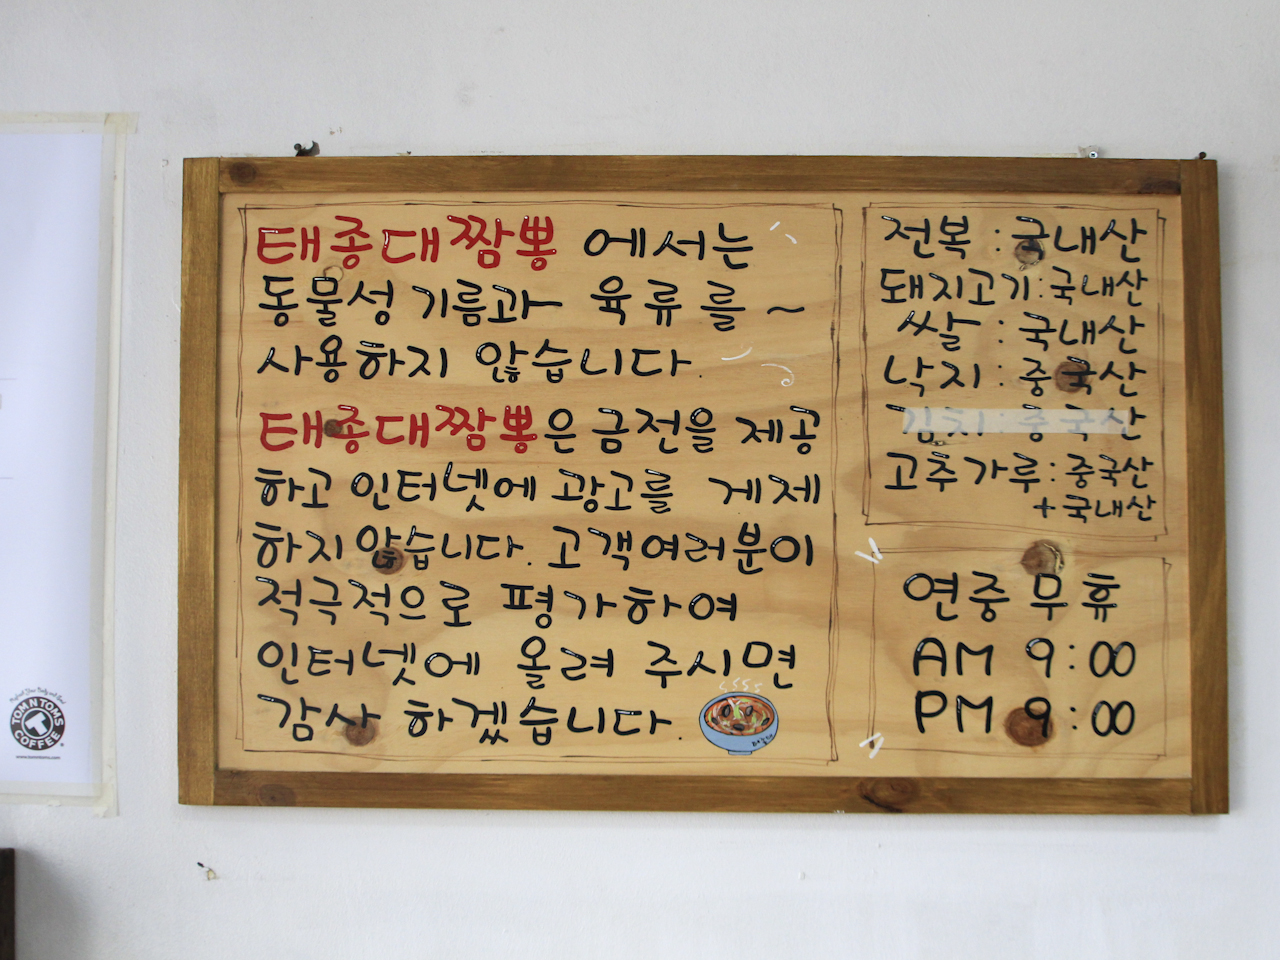 태종대짬뽕 에서는
동물성 기름과 육류를 ~
사용하지 않습니다.
태종대짬뽕은 금전을 제공
하고 인터넷에 광고를 게제
하지 않습니다. 고객여러분이
적극적으로 평가하여
인터넷에 올려 주시면
감사 하겠습니다.
전복 : 국내산
돼지고기 : 국내산
쌀 : 국내산
낙지 : 중국산
김치 : 중국산
고추가루 : 중국산
+ 국내산
연중무휴
AM 9:00
PM 9:00
TOM N TOMS
COFFEE